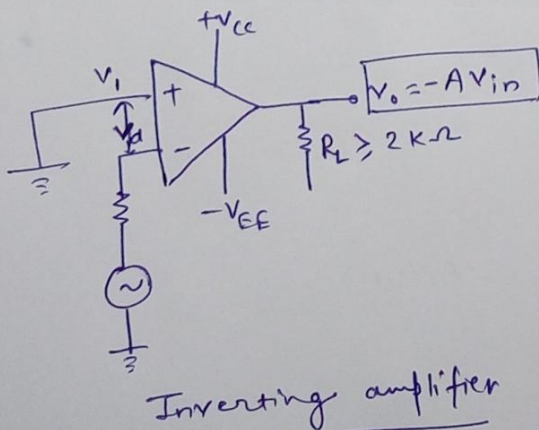 +VCC
V1
+
Vd
-
Vo = -AVin
RL ≥ 2KΩ
-VEE
~
Inverting amplifier